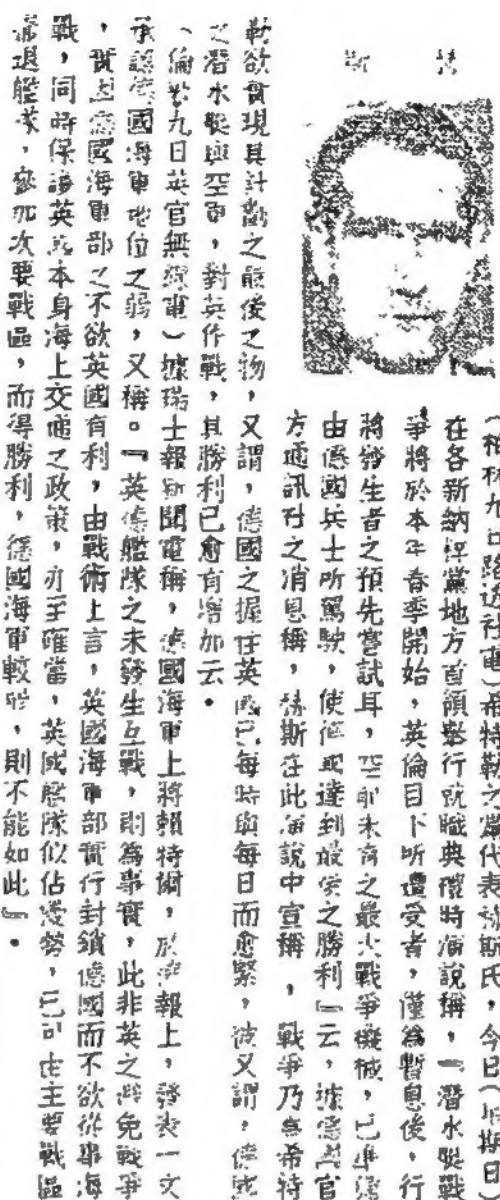 赫斯
(柏林九日路透社電)希特勒之黨代表赫斯氏,今日(星期日)
在各新納粹黨地方首領舉行就職典禮時演說稱,『潛水艇戰
爭將於本年春季開始,英倫目下所遭受者,僅為暫息後,行
將發生者之預先嘗試耳,空前未有之最大戰爭機械,已準備
由德國兵士所駕駛,使德國達到最後之勝利』云,據德國官
方通訊社之消息稱,赫斯在此演說中宣稱,戰爭乃為希特
勒欲實現其計劃之最後之物,又謂,德國之握住英國已每時與每日而愈緊,彼又謂,德國
之潛水艇與空軍,對英作戰,其勝利已愈有增加云。
(倫敦九日英官無線電)據瑞士報新聞電稱,德國海軍上將賴特爾,於該報上,發表一文
承認德國海軍地位之弱,又稱。『英德艦隊之未發生互戰,則為事實,此非英之避免戰爭
,實因德國海軍部之不欲英國有利,由戰術上言,英國海軍部實行封鎖德國而不欲從事海
戰,同時保護英國本身海上交通之政策,亦至確當,英國艦隊似佔優勢,已可由主要戰區
撤退艦隊,參加次要戰區,而得勝利,德國海軍較弱,則不能如此』。